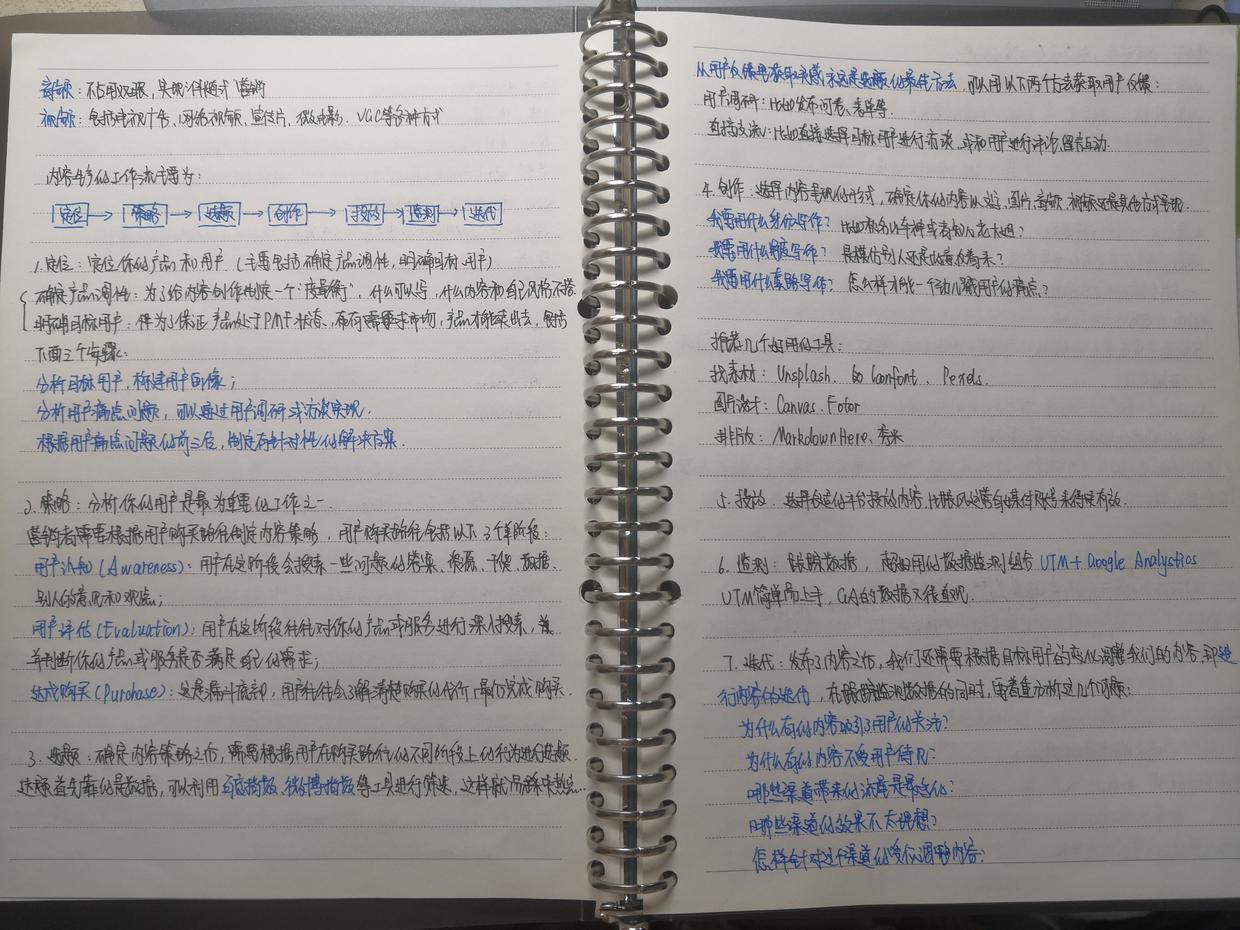 音频：不占用双眼，实现伴随式营销
视频：包括电视广告、网络视频、宣传片、微电影、VGC等各种方式
内容生产的工作流主要为：
定位→策略→选题→创作→投放→监测→迭代
1. 定位：定位你的产品和用户（主要包括确定产品调性，明确目标用户）
确定产品调性：为了给内容创作制定一个"度量衡"，什么可以写，什么内容和自己风格不搭
明确目标用户：作为了保证产品处于PMF状态、有需求市场，产品才能卖出去，包括
下面三个步骤：
分析目标用户，构建用户画像；
分析用户痛点问题，可以通过用户调研或访谈实现．
根据用户痛点问题的前三位，制定有针对性的解决方案．
2. 策略：分析你的用户是最为重要的工作之一
营销者需要根据用户购买路径制定内容策略，用户购买路径包括以下3个阶段：
用户认知（Awareness）：用户在这阶段会搜索一些问题的答案、资源、干货、数据、
别人的意见和观点；
用户评估（Evaluation）：用户在这阶段往往对你的产品或服务进行深入搜索，
并判断你的产品或服务是否满足自己的需求；
达成购买（Purchase）：这是漏斗底部，用户往往会了解清楚购买的代价，最后完成购买．
3. 选题：确定内容策略之后，需要根据用户在购买路径的不同阶段上的行为进行选题．
选题首先靠的是数据，可以利用百度指数、微博指数等工具进行筛选，这样就
从用户反馈里获取灵感永远是选题的最佳方法，可以用以下两个方法获取用户反馈：
用户调研：比如发布问卷、表单等．
直接交流：比如直接选择目标用户进行访谈，或和用户进行评论、留言互动．
4. 创作：选择内容呈现的形式，确定你的内容以文、图片、音频、视频还是其他方式呈现．
我要用什么身份写作？比如秋名山车神或者知心龙大姐？
我要用什么角度写作？是模仿别人还是
我要用什么套路写作？怎么样才能一个动儿戳用户的痛点？
推荐几个好用的工具：
找素材：Unsplash、Go Confont、Pexels．
图片设计：Canvas、Fotor
排版：MarkdownHere、秀米
5. 投放：选择合适的平台投放内容，比跟风运营自媒体账号来得更有效．
6. 监测：跟踪数据，常用的数据监测组合UTM+Google Analystios
UTM简单易上手，GA的数据又很直观．
7. 迭代：发布了内容之后，我们还需要根据目标用户的变化调整我们的内容，即进
行内容的迭代，在跟踪监测数据的同时，需着重分析这几个问题：
为什么有的内容吸引了用户的关注？
为什么有的内容不受用户待见？
哪些渠道带来的流量是最好的？
哪些渠道的效果不太理想？
怎样针对这个渠道的受众调整内容？